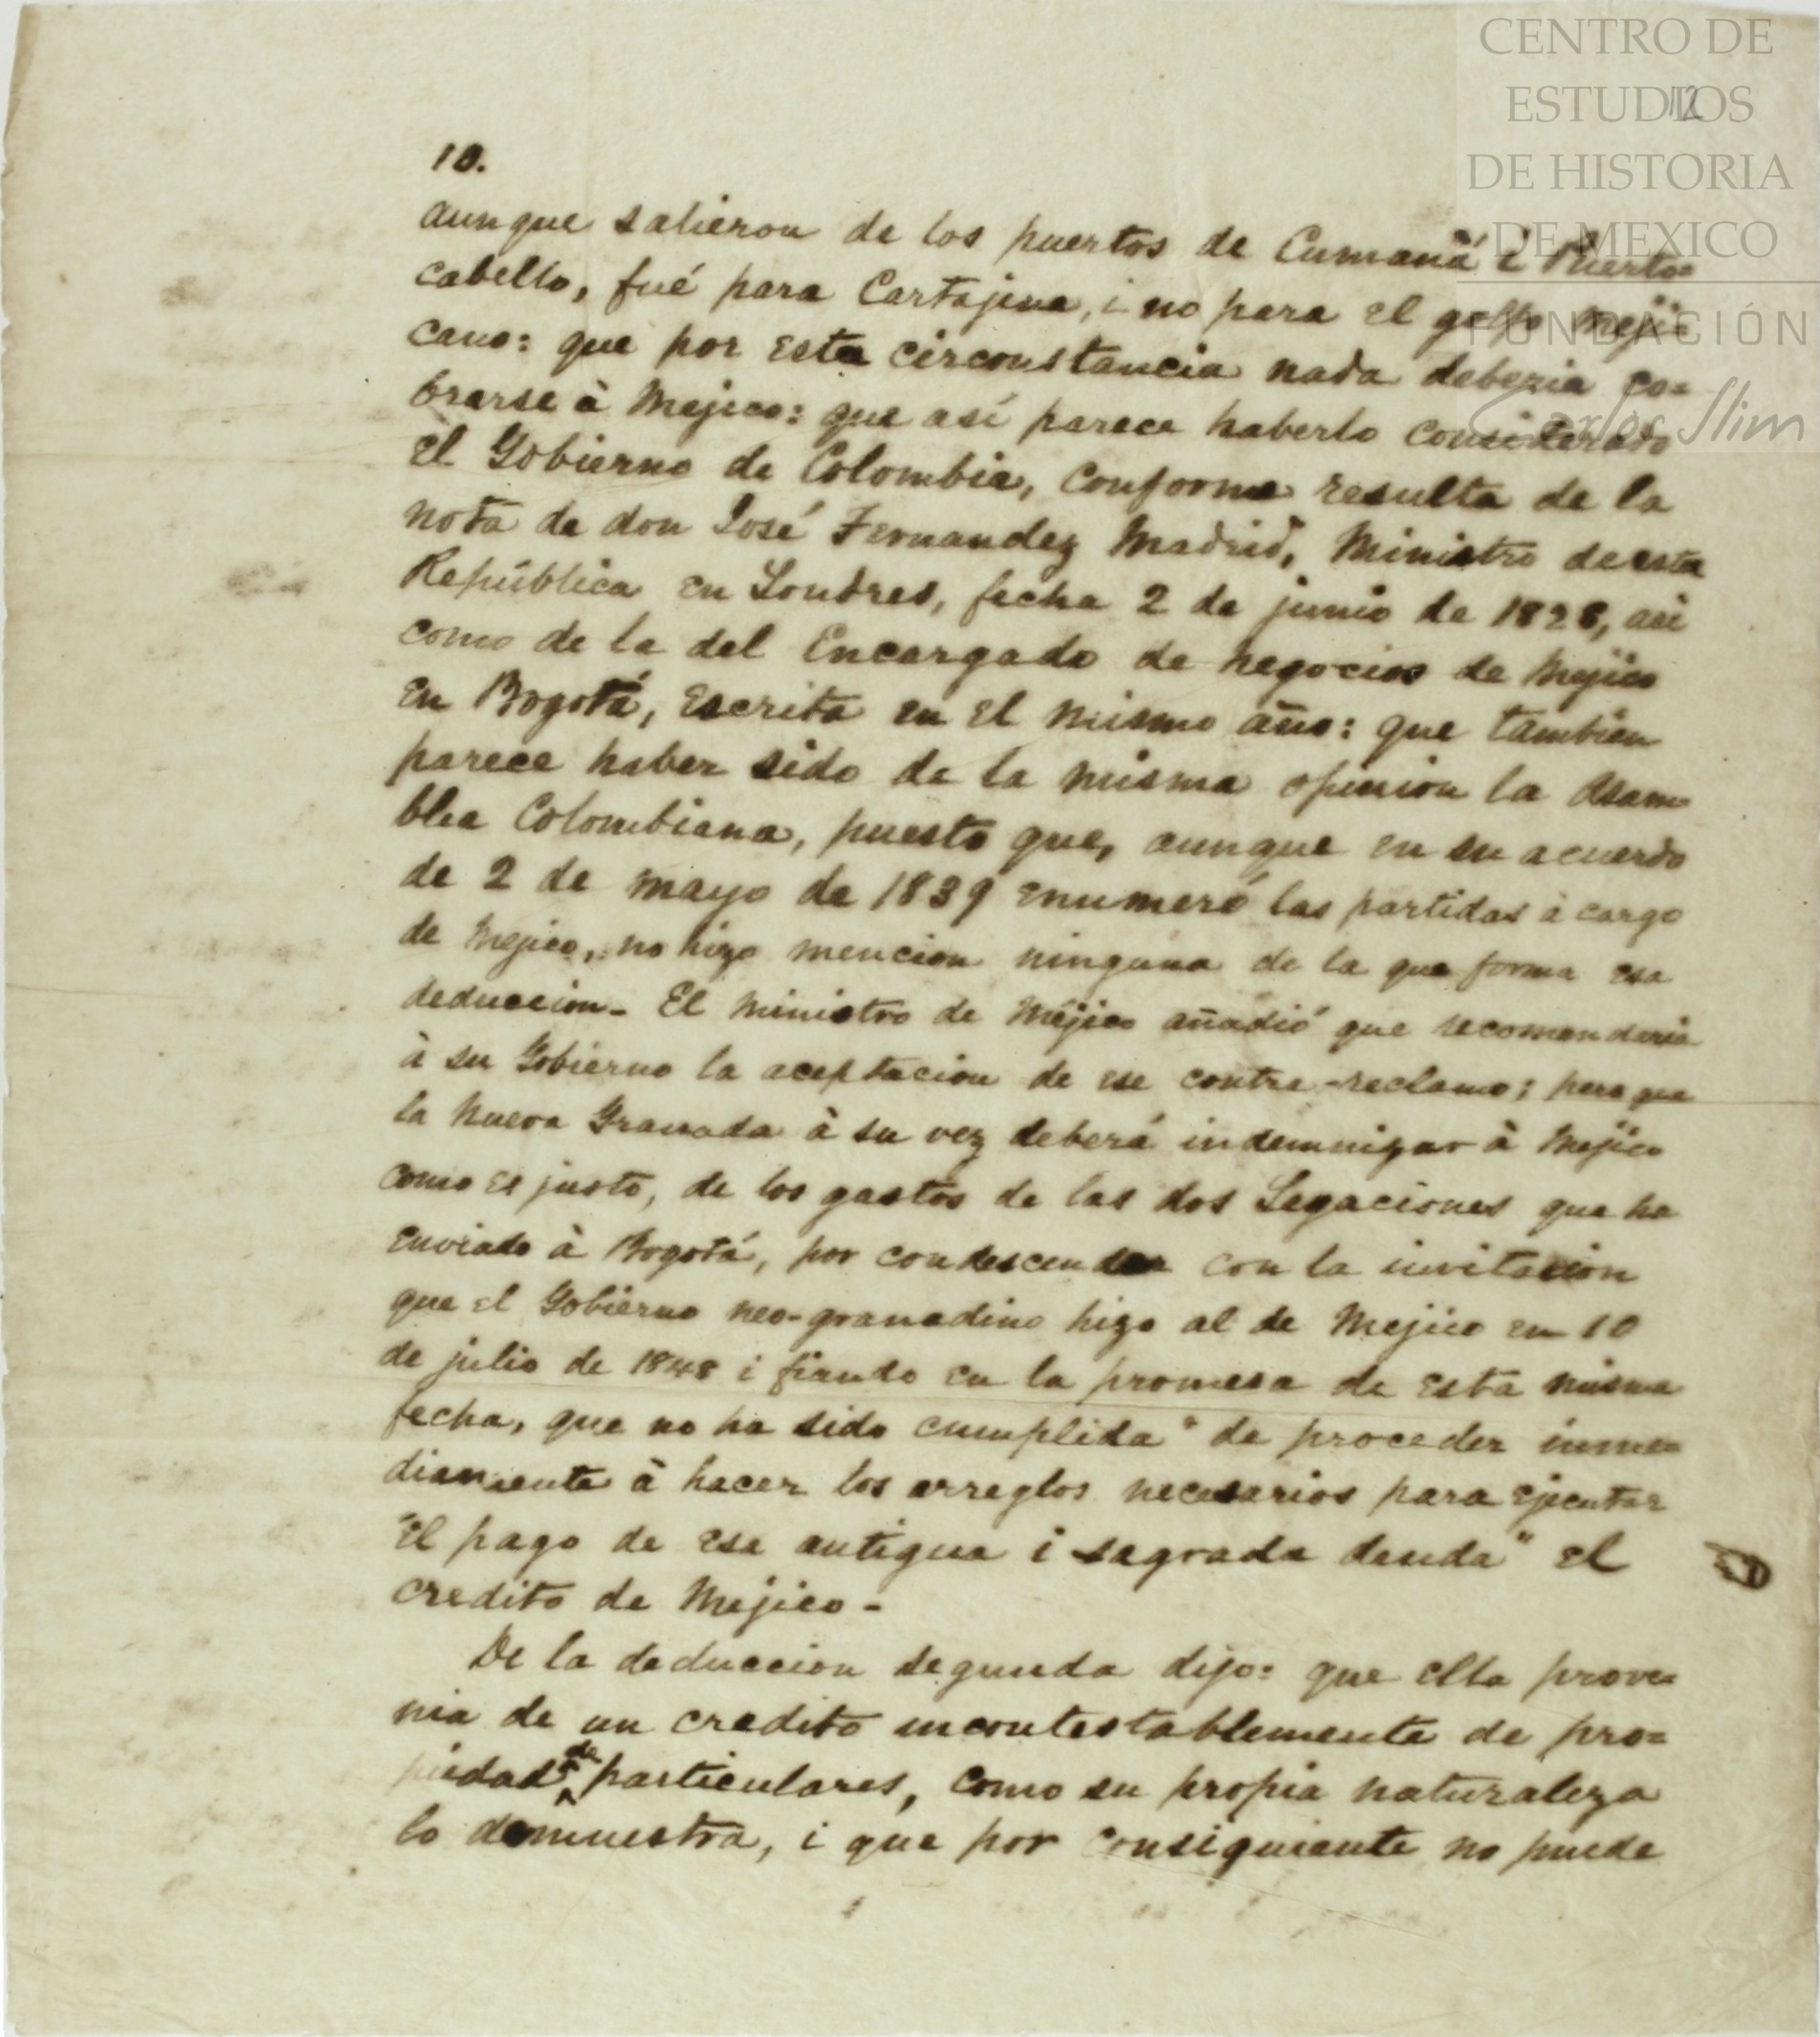 CENTRO DE
ESTUDIOS
DE HISTORIA
DE MEXICO
FUNDACIÓN
Carlos Slim
112
10.
aunque salieron de los puertos de Cumaná i Puerto=
cabello, fué para Cartajena, i no para el golfo meji=
cano: que por esta circonstancia nada deberia co=
brarse à Mejico: que así parece haberlo considerado
el Gobierno de Colombia, conforme resulta de la
nota de don José Fernandez Madrid, Ministro de esta
República en Londres, fecha 2 de junio de 1828, asi
como de la del Encargado de negocios de Mejico
en Bogotá, escrita en el mismo año: que tambien
parece haber sido de la misma opinion la Asam=
blea Colombiana, puesto que, aunque en su acuerdo
de 2 de mayo de 1839 enumeró las partidas à cargo
de Mejico, no hizo mencion ninguna de la que forma esa
deduccion- El Ministro de Méjico añadió que recomendaria
à su Gobierno la aceptacion de ese contra-reclamo; pero que
la Nueva Granada à su vez deberá indemnizar à Mejico
como es justo, de los gastos de las dos Legaciones que ha
enviado à Bogotá, por condescender con la invitacion
que el Gobierno neo-granadino hizo al de Mejico en 10
de julio de 1848 i fiando en la promesa de esta misma
fecha, que no ha sido cumplida "de proceder inme=
diamente à hacer los arreglos necesarios para ejecutar
"el pago de esa antigua i sagrada deuda" el
credito de Mejico-
De la deduccion segunda dijo: que ella prove=
nia de un credito incontestablemente de pro=
piedad de particulares, como su propia naturaleza
lo demuestra, i que por consiguiente no puede